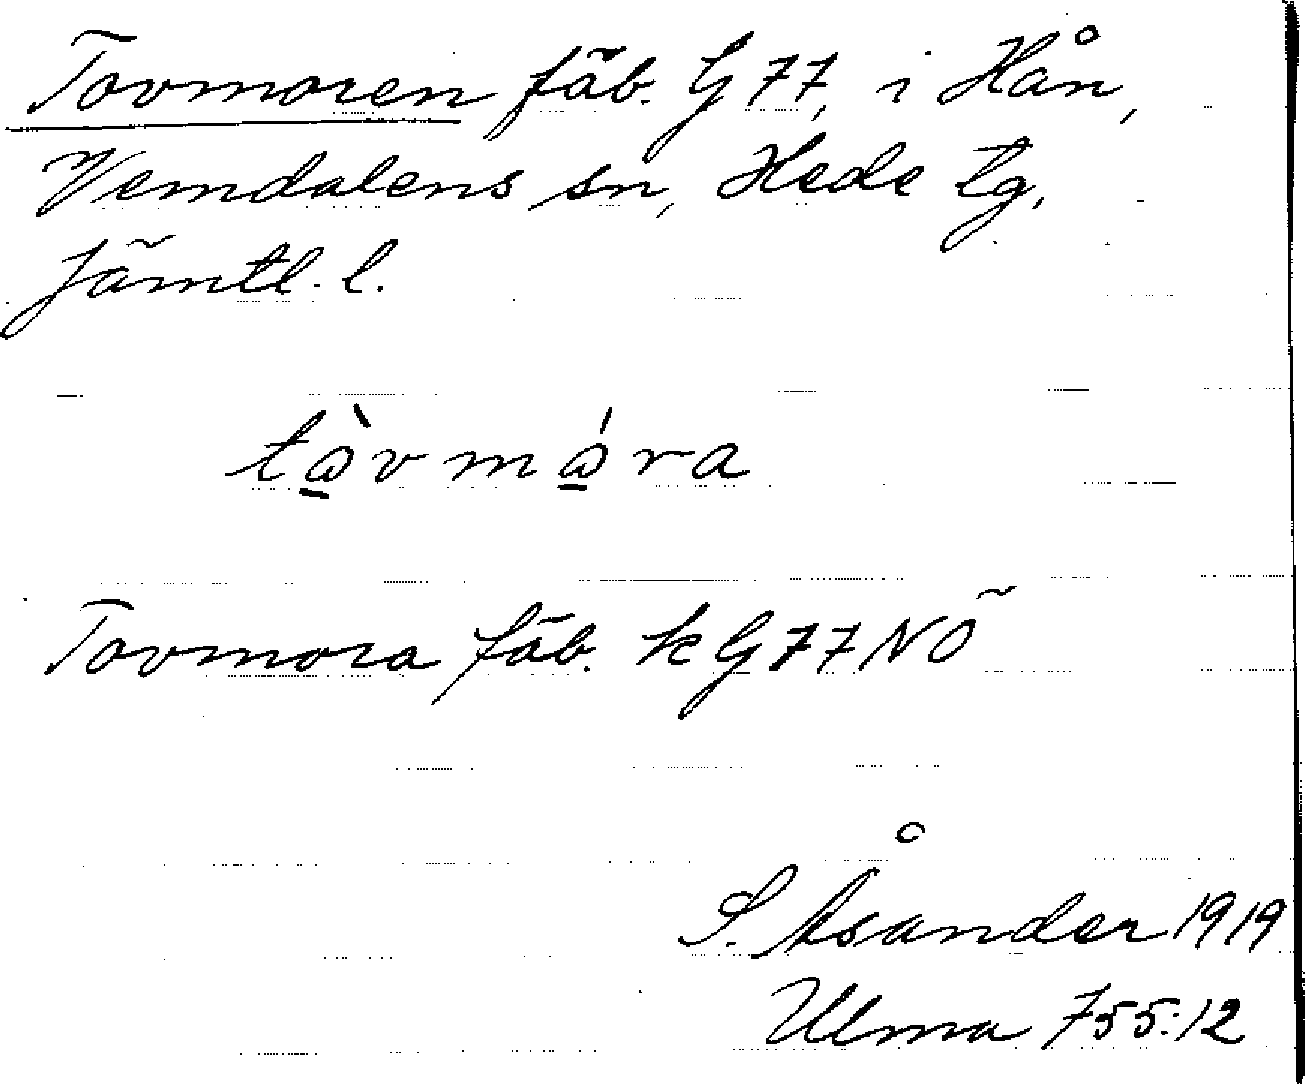 Tovmoren fäb. G 77, i Hån,
Vemdalens sn, Hede tg,
Jämtl. l.
tὼ̱vmώ̱ra
Tovmora fäb. k G 77 NÖ
S. Åsander 1919
Ulma 755:12